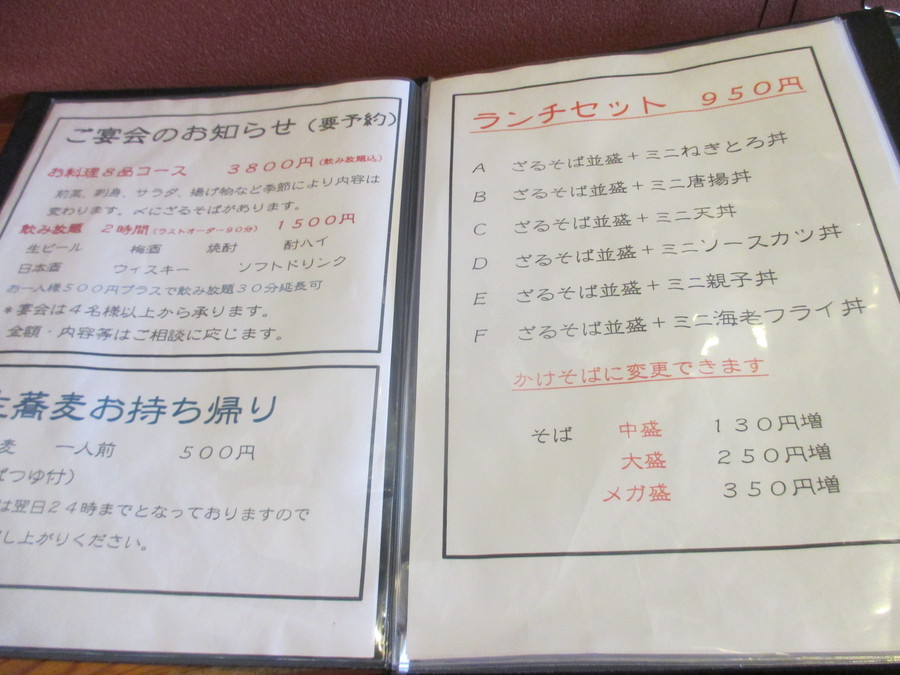 ご宴会のお知らせ（要予約）
お料理８品コース　３８００円（飲み放題込）
前菜、刺身、サラダ、揚げ物など季節により内容は
変わります。〆にざるそばがあります。
飲み放題　２時間（ラストオーダー９０分）　１５００円
生ビール　梅酒　焼酎　酎ハイ
日本酒　ウィスキー　ソフトドリンク
お一人様５００円プラスで飲み放題３０分延長可
＊宴会は４名様以上から承ります。
金額・内容等はご相談に応じます。
蕎麦お持ち帰り
麦　一人前　５００円
つゆ付）
は翌日２４時までとなっておりますので
し上がりください。
ランチセット　９５０円
A　ざるそば並盛＋ミニねぎとろ丼
B　ざるそば並盛＋ミニ唐揚丼
C　ざるそば並盛＋ミニ天丼
D　ざるそば並盛＋ミニソースカツ丼
E　ざるそば並盛＋ミニ親子丼
F　ざるそば並盛＋ミニ海老フライ丼
かけそばに変更できます
そば　中盛　１３０円増
大盛　２５０円増
メガ盛　３５０円増